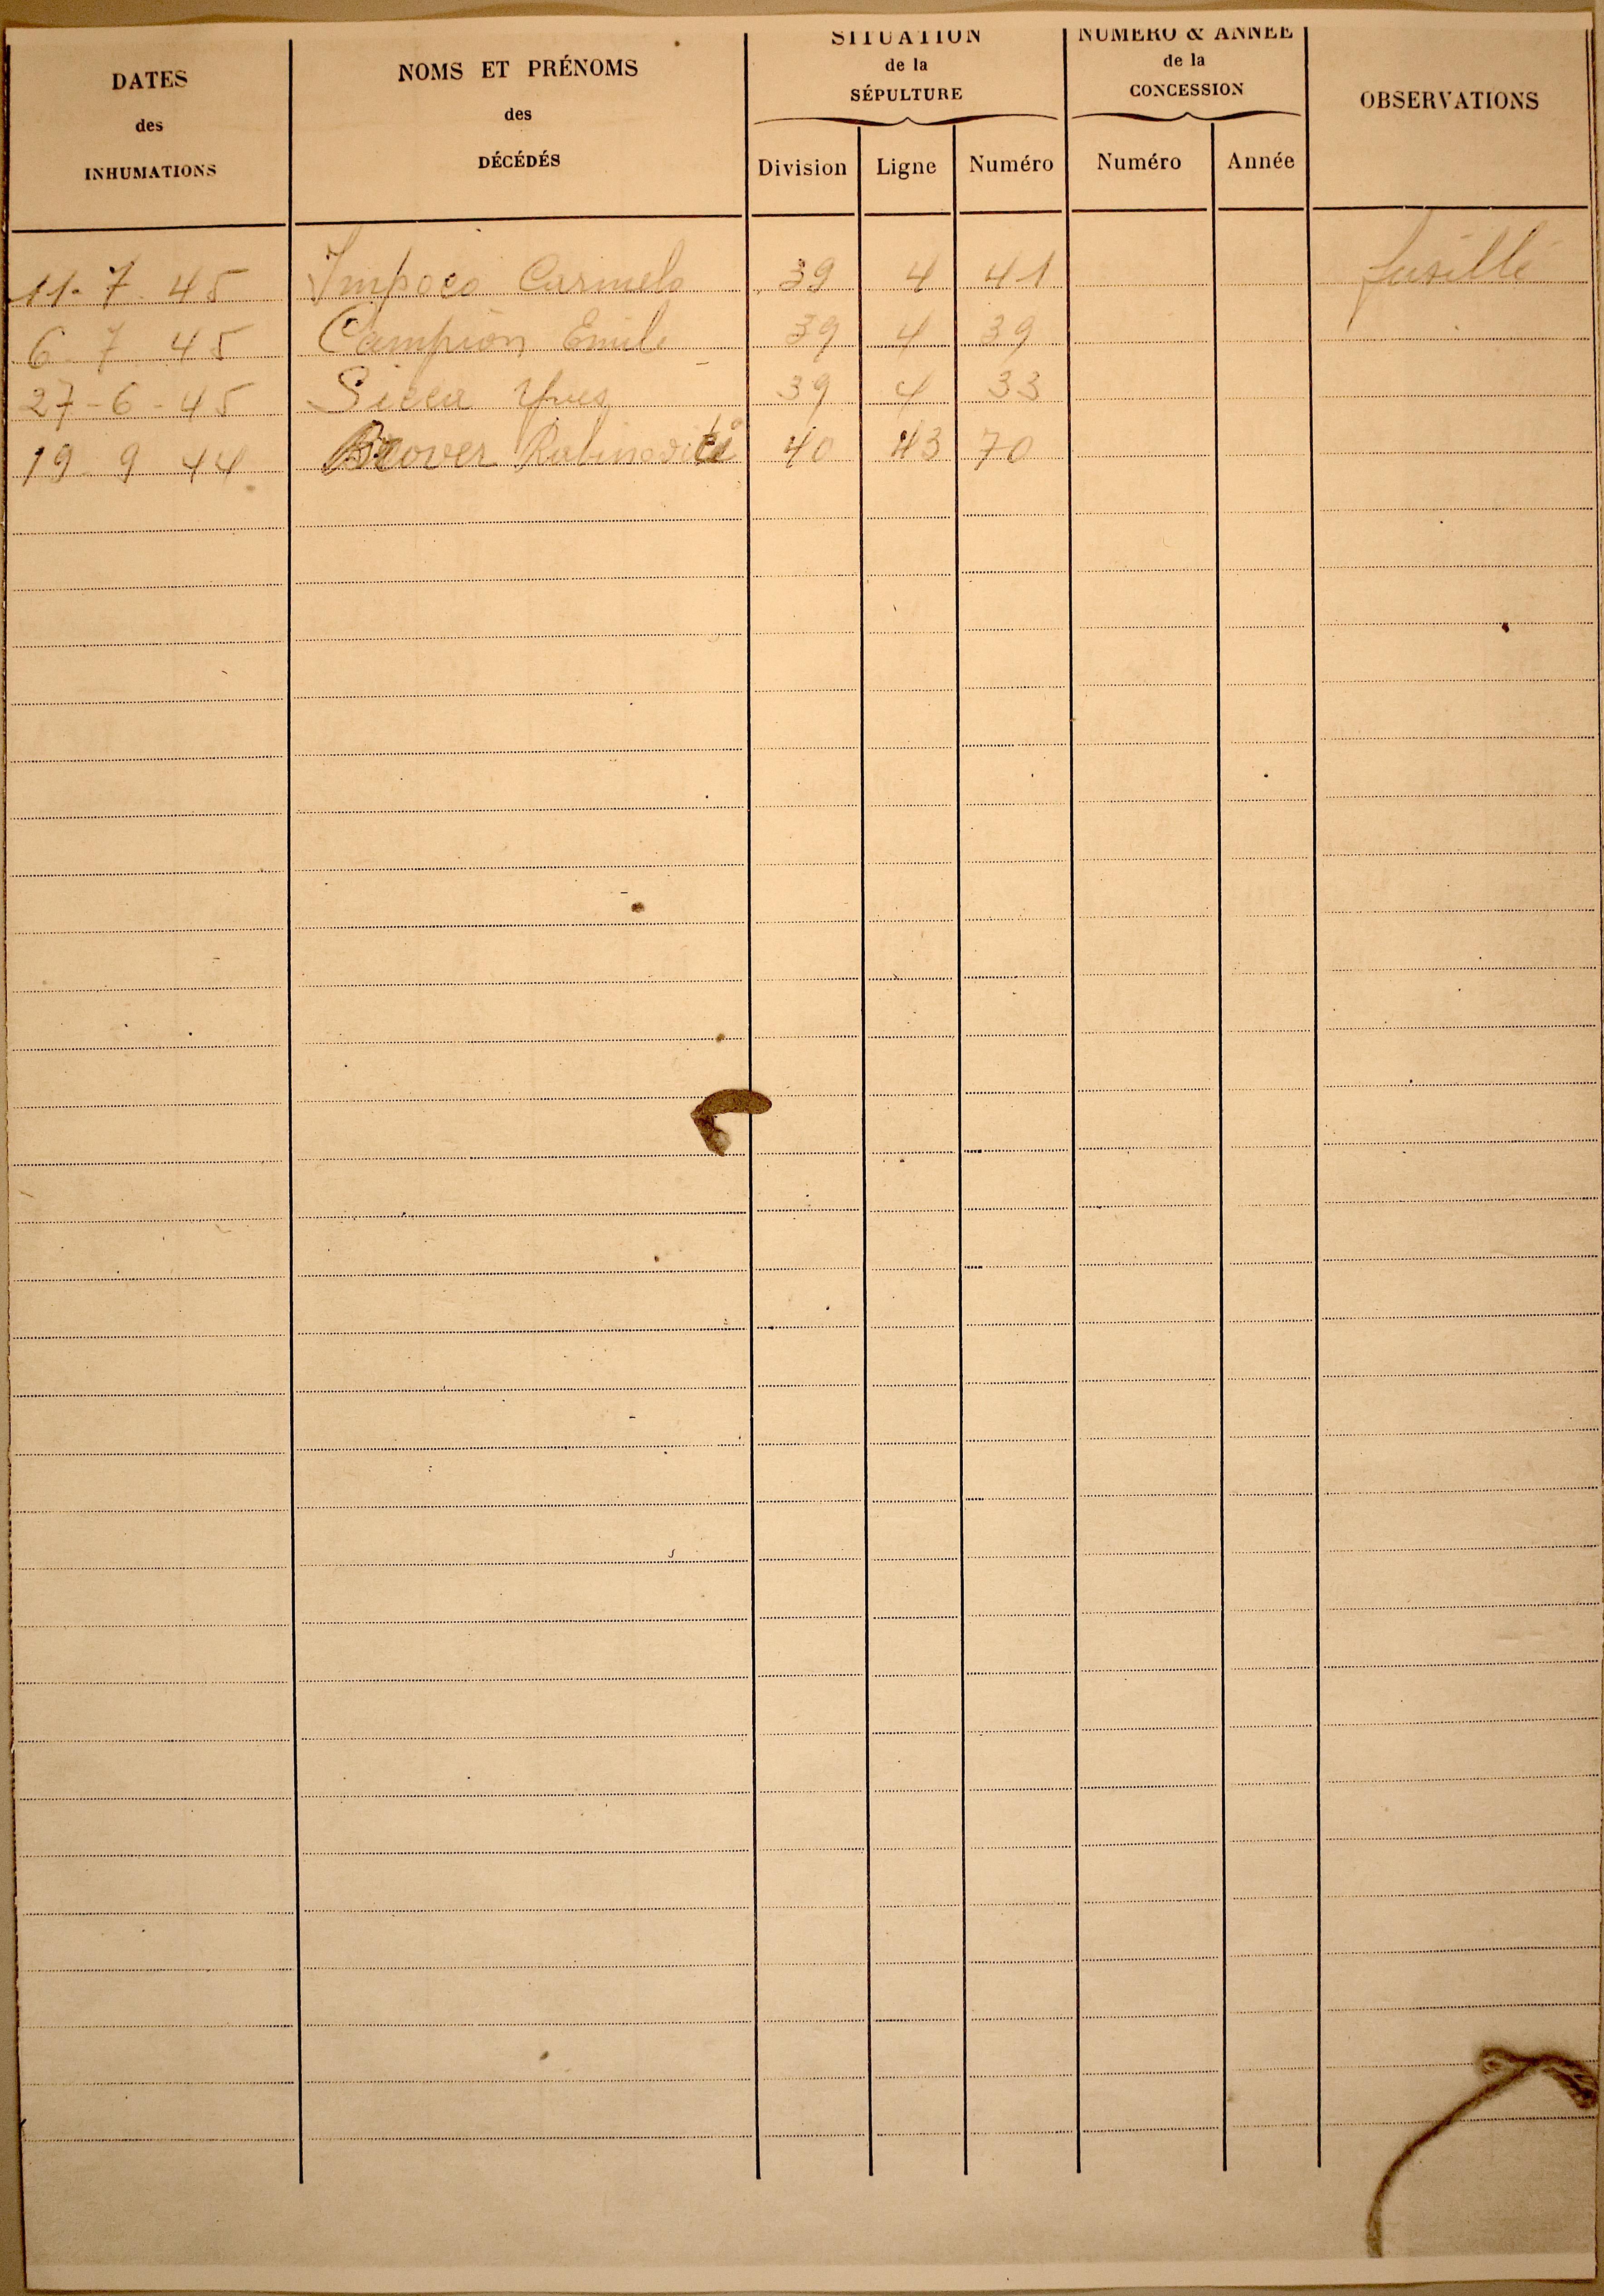 DATES
des
INHUMATIONS
NOMS ET PRÉNOMS
des
DÉCÉDÉS
SITUATION
de la
SÉPULTURE
Division Ligne Numéro
NUMÉRO & ANNÉE
de la
CONCESSION
Numéro Année
OBSERVATIONS
11. 7. 45 Impoco Carmelo 39 4 41 fusillé
6 7 45 Campion Emile 39 4 39
27-6-45 Yves 39 4 33
19 9 44 40 43 70